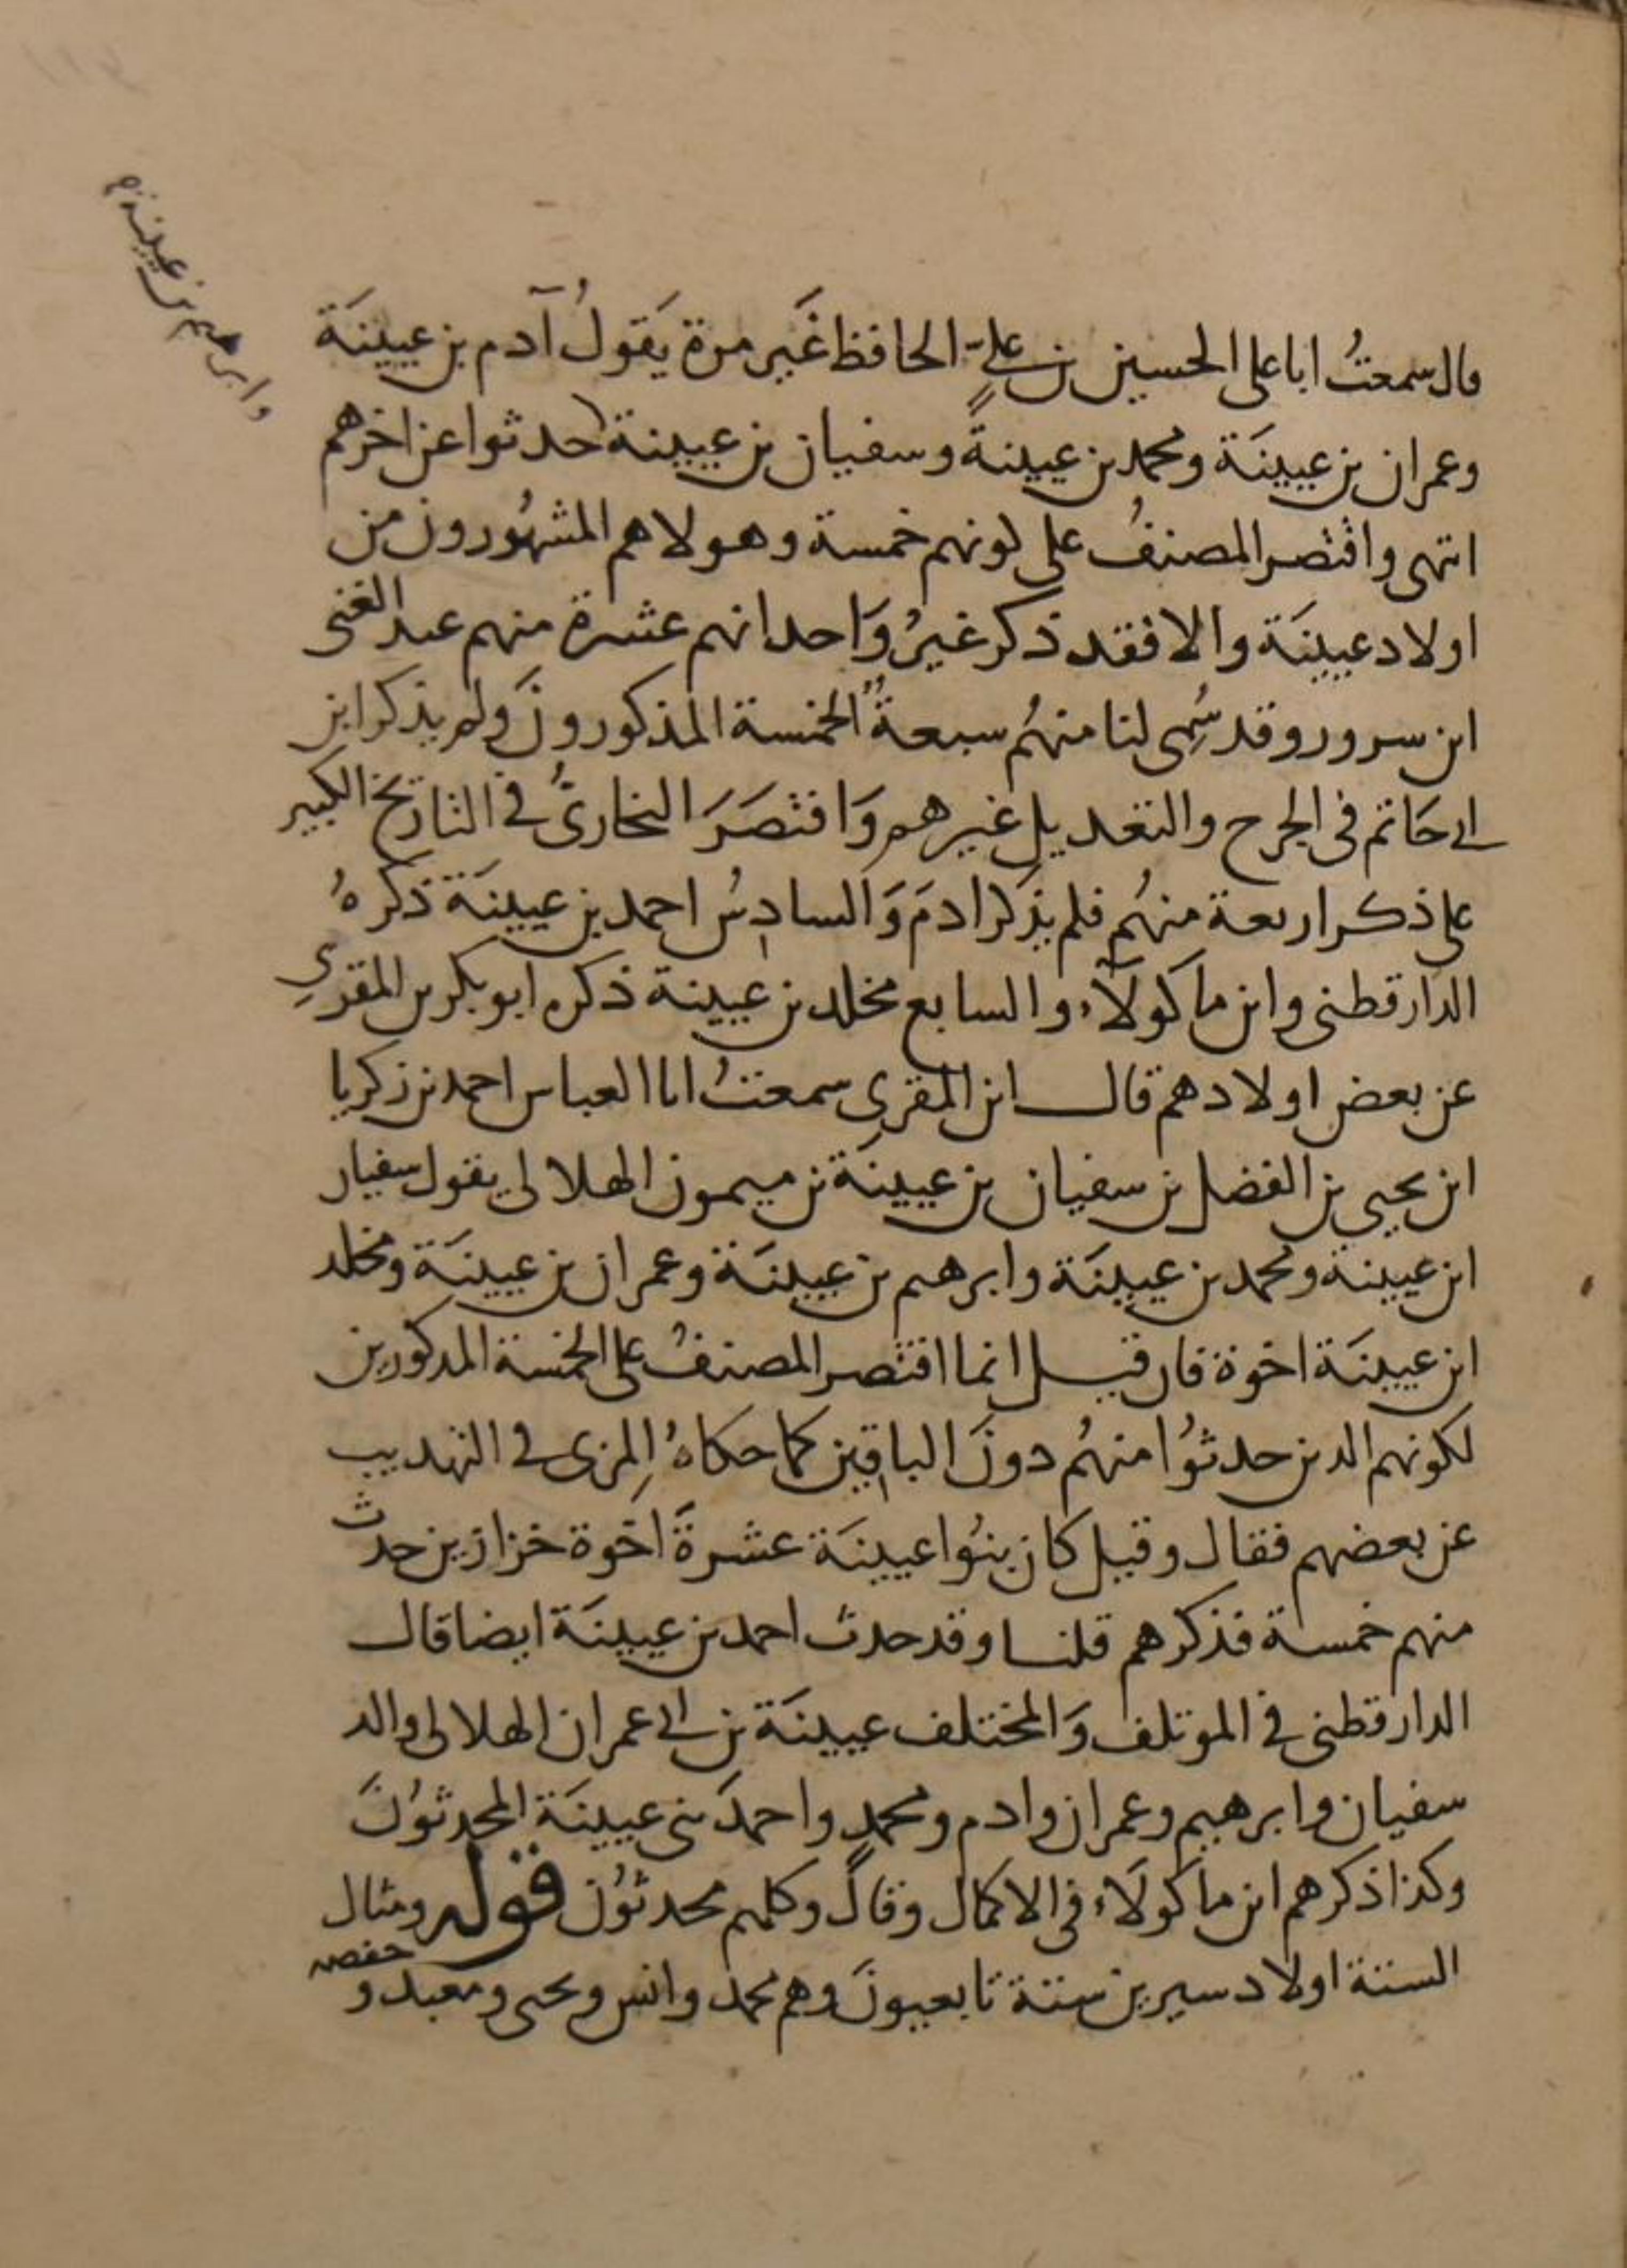 قال سمعتُ ابا على الحسين بن علىٍّ الحافظ غَير مرة يَقولُ آدم بن عيينَة
وعمران بن عيينَة ومحمد بن عيينةً وسفيان بن عيينة حدثوا عن اخرهم
وابرهيم بن عيينة
انتهى واقتصر المصنفُ على كونهم خمسة وهولاهم المشهُورون من
اولاد عيينَة والا فقد ذكر غيرُ وَاحد انهم عشرة منهم عبد الغنى
ابن سرور وقد سُمِى لنا منهُم سبعةٌ الخمسة المذكورونَ ولم يذكر ابن
ابى حَاتم فى الجرح والتعديل غيرهم وَاقتصَرَ البخارىُّ فى التاريخ الكبير
على ذكر اربعة منهُم فلم يذكر ادمَ وَالسادسُ احمد بن عيينَة ذكرهُ
الدارقطنى وابن ماكولاء والسابع مخلد بن عيينة ذكره ابو بكر بن المقرىِ
عن بعض اولادهم قال ابن المقرىِ سمعتُ ابا العباس احمد بن زكريا
ابن يحيى بن الفضل بن سفيان بن عيينَة بن ميمون الهلالى يقول سفيان
ابن عيينة ومحمد بن عيينَة وابرهيم بن عيينَة وعمران بن عيينَة ومخلد
ابن عيينَة اخوة فان قيل انما اقتصر المصنفُ على الخمسة المذكورين
لكونهم الذين حدثوُا منهُم دونَ الباقين كما حكاهُ المِزى فى التهذيب
عن بعضهم فقال وقيل كان بنُوا عيينَة عشرةَ اخوة خزازين حدث
منهم خمسة فذكرهم قلنا وقد حدث احمد بن عيينَة ايضا قال
الدارقطنى فى الموتلف وَالمختلف عيينَة بن ابى عمران الهلالى والد
سفيان وابرهيم وعمران وادم ومحمدٍ واحمدَ بنى عيينَة المحدثوُنَ
وكذا ذكرهم ابن ماكولَاء فى الاكمال وقالَ وكلهم محدثوُن قوله ومثال
الستة اولاد سيرين ستة تابعيونَ وهم محمد وانس ويحيى ومعبد و حفصه